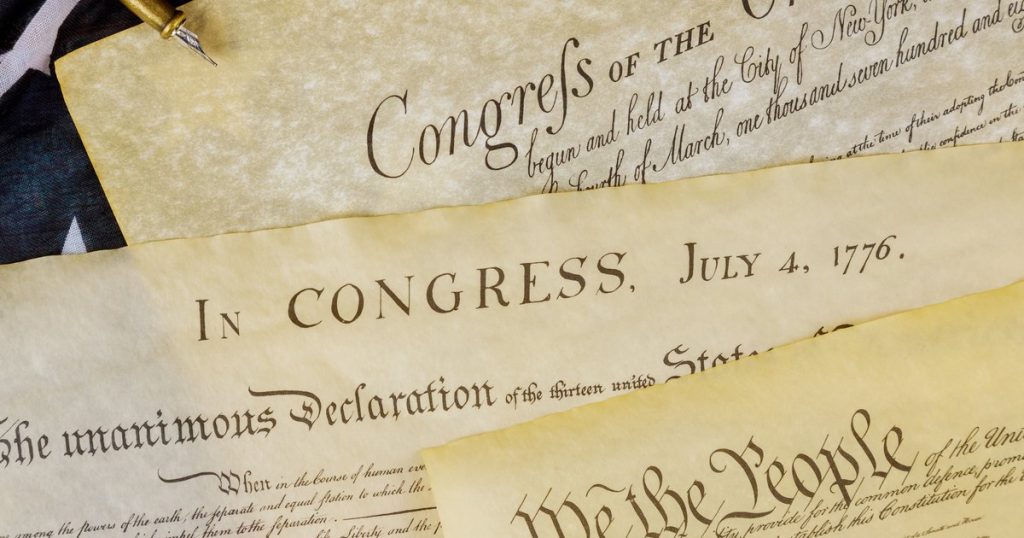 Congreſs OF THE
begun and held at the City of New-York,
Fourth of March, one thousand seven hundred and
at the time of their adopting the
confidence in the
IN CONGRESS, JULY 4, 1776.
The unanimous Declaration of the thirteen united
When in the Course of human
among the powers of the earth, the separate and equal station to which the
impel them to the separation.
Liberty and the
We the People of the
provide for the common defence,
establish this Constitution for the